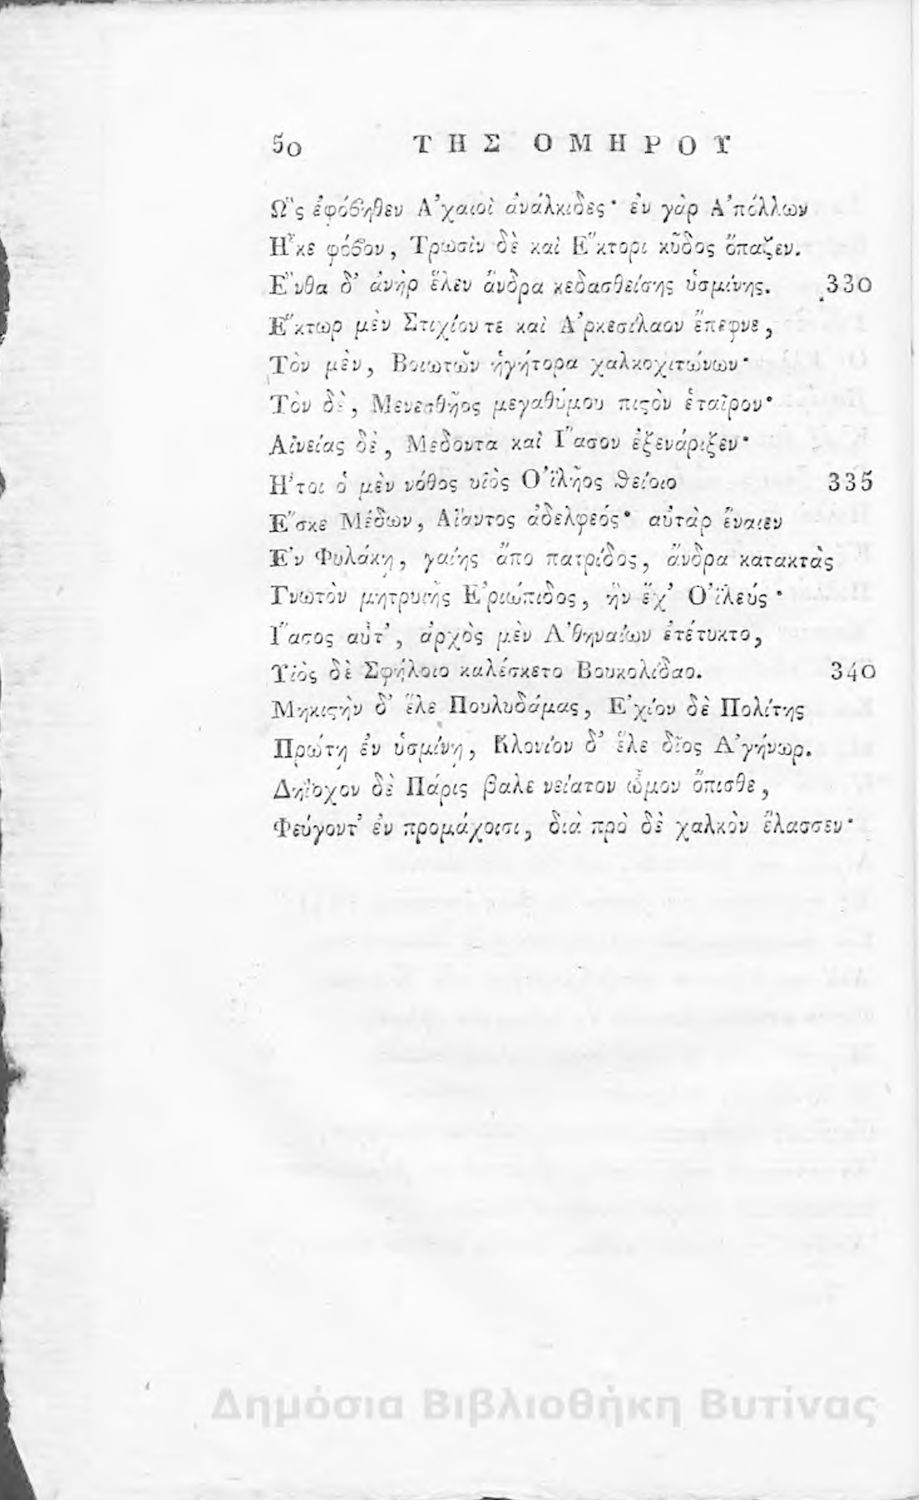 50 ΤΗΣ ΟΜΗΡΟΥ
Ω῝ς ἐφόϐηθεν Α᾽χαιοὶ ἀνάλκιδες· ἐν γὰρ Α᾽πόλλων
Η῟κε φόϐον, Τρωσὶν δὲ καὶ Ε῞κτορι κῦδος ὄπαζεν.
Ε῎νθα δ᾽ ἀνὴρ ἕλεν ἄνδρα κεδασθείσης ὑσμίνης. 330
Ε῞κτωρ μὲν Στιχίον τε καὶ Α᾽ρκεσίλαον ἔπεφνε,
Τὸν μὲν, Βοιωτῶν ἡγήτορα χαλκοχιτώνων·
Τὸν δὲ, Μενεσθῆος μεγαθύμου πιϛὸν ἑταῖρον·
Αἰνείας δὲ, Μέδοντα καὶ Ι῎ασον ἐξενάριξεν·
Η῎τοι ὁ μὲν νόθος υἱὸς Ο᾽ϊλῆος θείοιο 335
Ε῎σκε Μέδων, Αἴαντος ἀδελφεός· αὐτὰρ ἔναιεν
Ε᾽ν Φυλάκῃ, γαίης ἄπο πατρίδος, ἄνδρα κατακτὰς
Γνωτὸν μητρυιῆς Ε᾽ριώπιδος, ἣν ἔχ᾽ Ο᾽ϊλεύς·
Ι῎ασος αὖτ᾽, ἀρχὸς μὲν Α᾽θηναίων ἐτέτυκτο,
Υἱὸς δὲ Σφήλοιο καλέσκετο Βουκολίδαο. 340
Μηκιϛὴν δ᾽ ἕλε Πουλυδάμας, Ε᾽χίον δὲ Πολίτης
Πρώτῃ ἐν ὑσμίνῃ, Κλονίον δ᾽ ἕλε δῖος Α᾽γήνωρ.
Δηΐοχον δὲ Πάρις βαλε νείατον ὦμον ὄπισθε,
Φεύγοντ᾽ ἐν προμάχοισι, διὰ πρὸ δὲ χαλκὸν ἔλασσεν·
Δημόσια Βιβλιοθήκη Βυτίνας